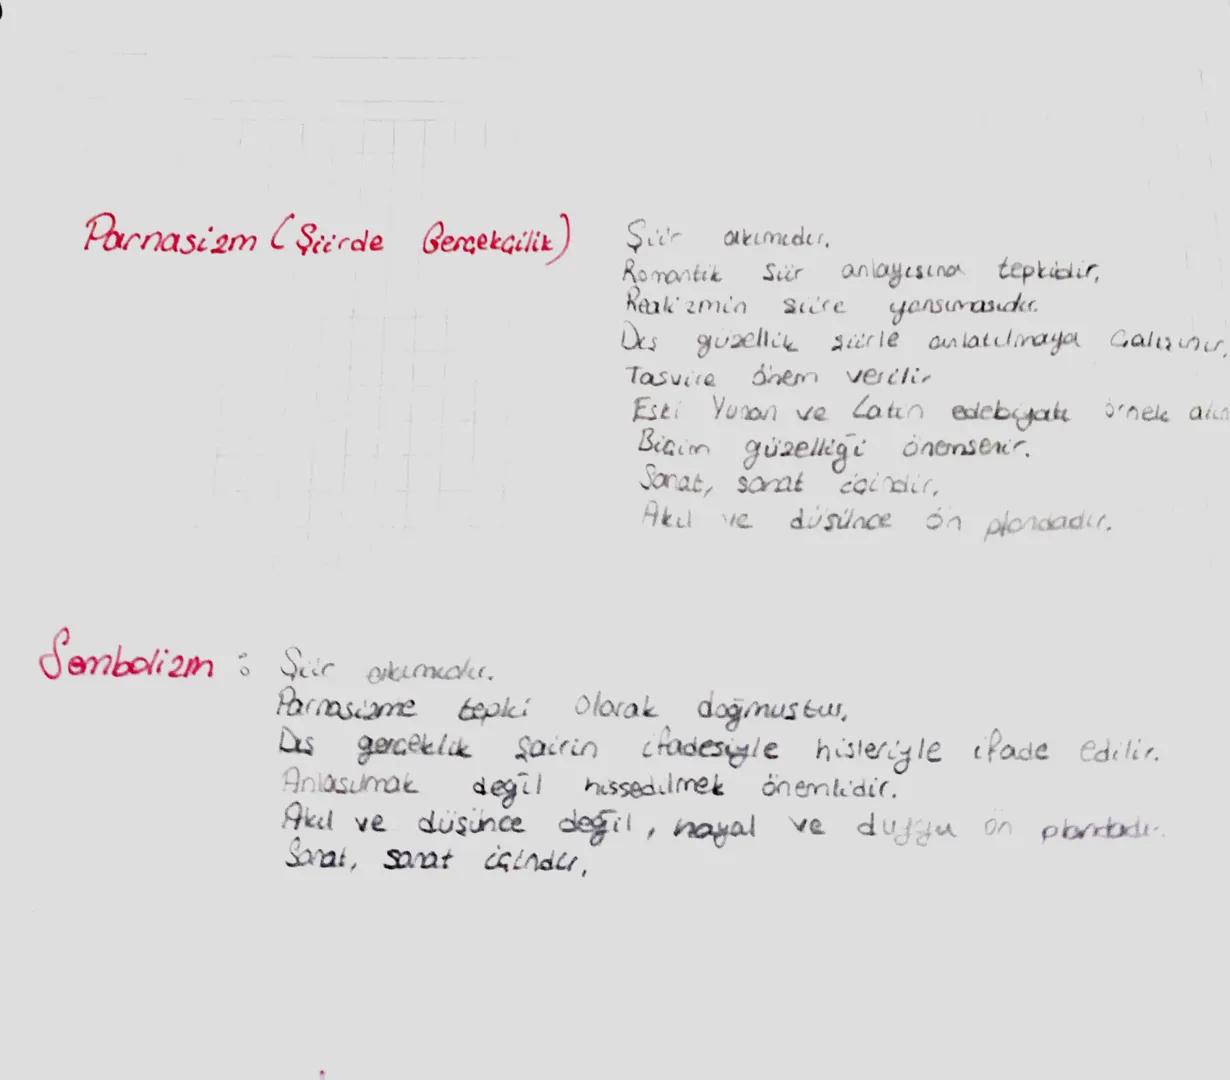 Parnasizm (Şiirde Gerçekçilik)
Şiir akımıdır.
Romantik şiir anlayışına tepkidir,
Realizmin şiire yansımasıdır.
Dış güzellik şiirle anlatılmaya çalışılır,
Tasvire önem verilir
Eski Yunan ve Latin edebiyatı örnek alın
Biçim güzelliği önemsenir.
Sanat, sanat içindir,
Akıl ve düşünce ön plandadır.
Sembolizm : Şiir akımıdır.
Parnasizme tepki olarak doğmuştur,
Dış gerçeklik şairin ifadesiyle hisleriyle ifade edilir.
Anlaşılmak değil hissedilmek önemlidir.
Akıl ve düşünce değil, hayal ve duygu ön plandadır.
Sanat, sanat içindir,